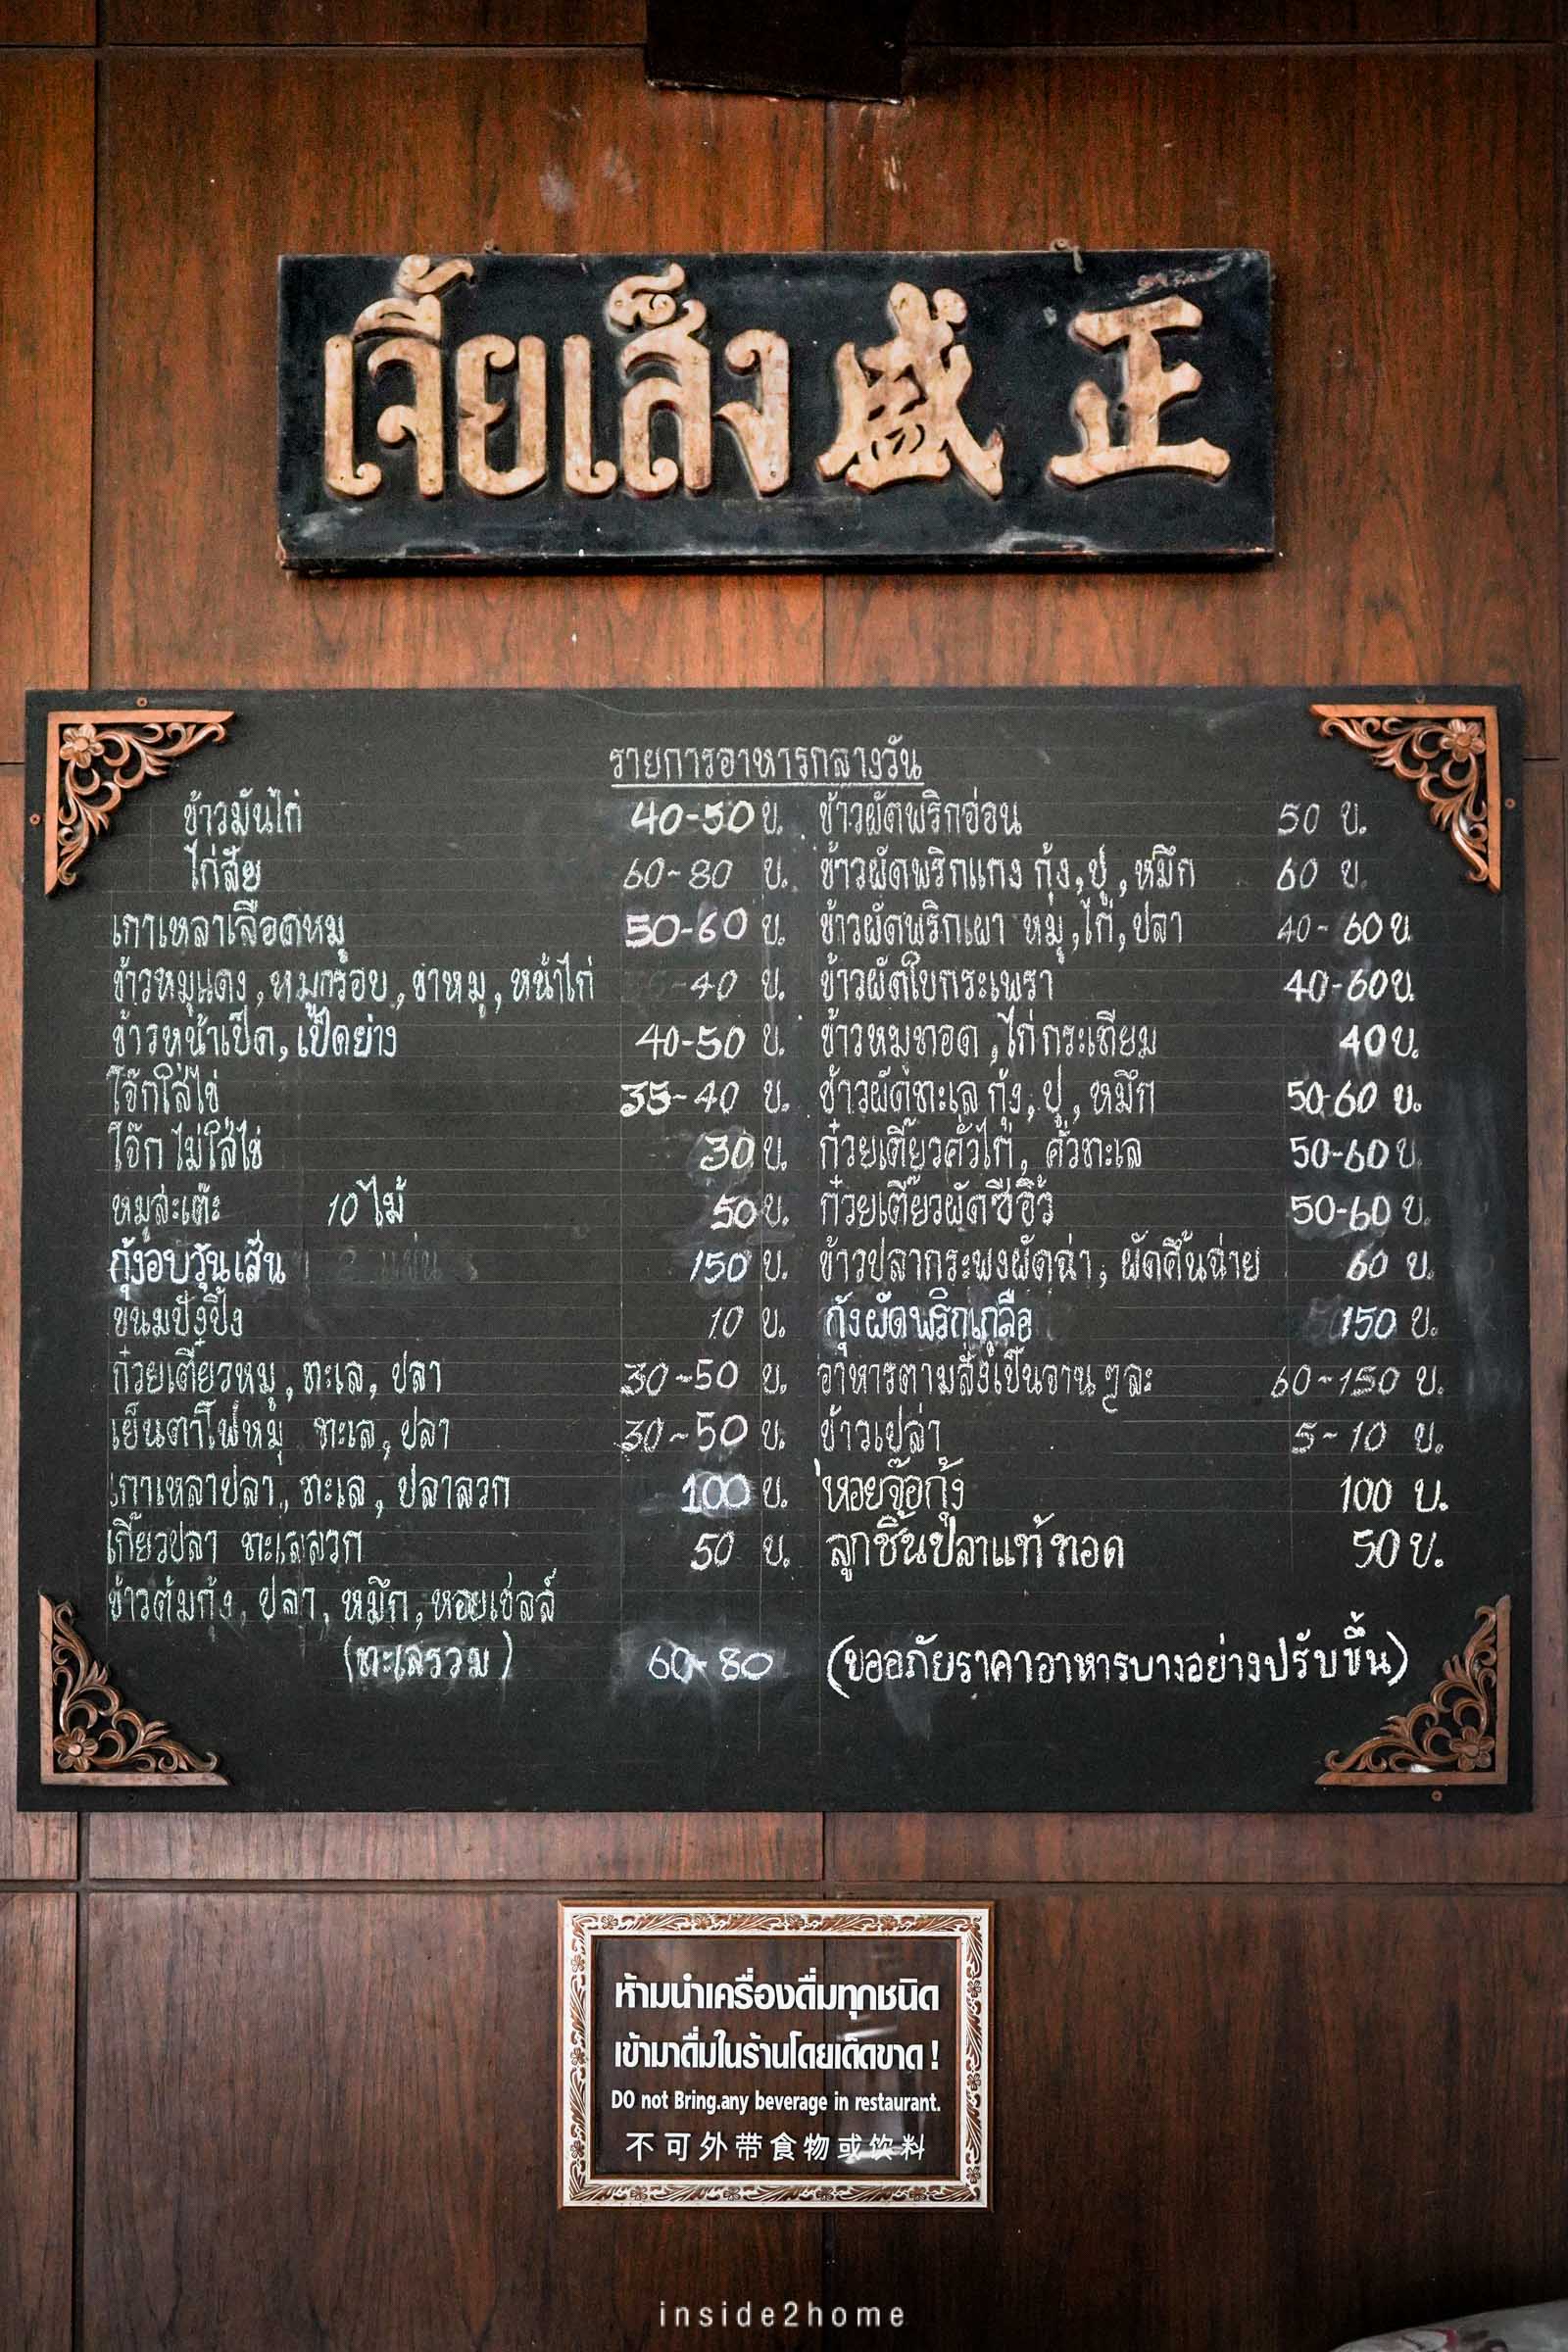 เจี้ยเส็ง 盛 正
รายการอาหารกลางวัน
ข้าวมันไก่ 40-50 บ.
ไก่สับ 60-80 บ.
เกาเหลาเลือดหมู 50-60 บ.
ข้าวหมูแดง, หมูกรอบ, ขาหมู, หน้าไก่ -40 บ.
ข้าวหน้าเป็ด, เป็ดย่าง 40-50 บ.
โจ๊กใส่ไข่ 35-40 บ.
โจ๊กไม่ใส่ไข่ 30 บ.
หมูสะเต๊ะ 10 ไม้ 50 บ.
กุ้งอบวุ้นเส้น 150 บ.
ขนมปังปิ้ง 10 บ.
ก๋วยเตี๋ยวหมู, ทะเล, ปลา 30-50 บ.
เย็นตาโฟหมู ทะเล, ปลา 30-50 บ.
เกาเหลาปลา, ทะเล, ปลาลวก 100 บ.
เกี๊ยวปลา ทะเลลวก 50 บ.
ข้าวต้มกุ้ง, ปลา, หมึก, หอยเชลล์
(ทะเลรวม) 60-80
ข้าวผัดพริกอ่อน 50 บ.
ข้าวผัดพริกแกง กุ้ง, ปู, หมึก 60 บ.
ข้าวผัดพริกเผา หมู, ไก่, ปลา 40-60 บ.
ข้าวผัดใบกระเพรา 40-60 บ.
ข้าวหมูทอด, ไก่กระเทียม 40 บ.
ข้าวผัดทะเล กุ้ง, ปู, หมึก 50-60 บ.
ก๋วยเตี๋ยวคั่วไก่, คั่วทะเล 50-60 บ.
ก๋วยเตี๋ยวผัดซีอิ้ว 50-60 บ.
ข้าวปลากระพงผัดฉ่า, ผัดคึ้นฉ่าย 60 บ.
กุ้งผัดพริกเกลือ 150 บ.
อาหารตามสั่งเป็นจานๆละ 60-150 บ.
ข้าวเปล่า 5-10 บ.
หอยจ๊อกุ้ง 100 บ.
ลูกชิ้นปลาแท้ทอด 50 บ.
(ขออภัยราคาอาหารบางอย่างปรับขึ้น)
ห้ามนำเครื่องดื่มทุกชนิด
เข้ามาดื่มในร้านโดยเด็ดขาด !
DO not Bring.any beverage in restaurant.
不可外带食物或饮料
inside2home